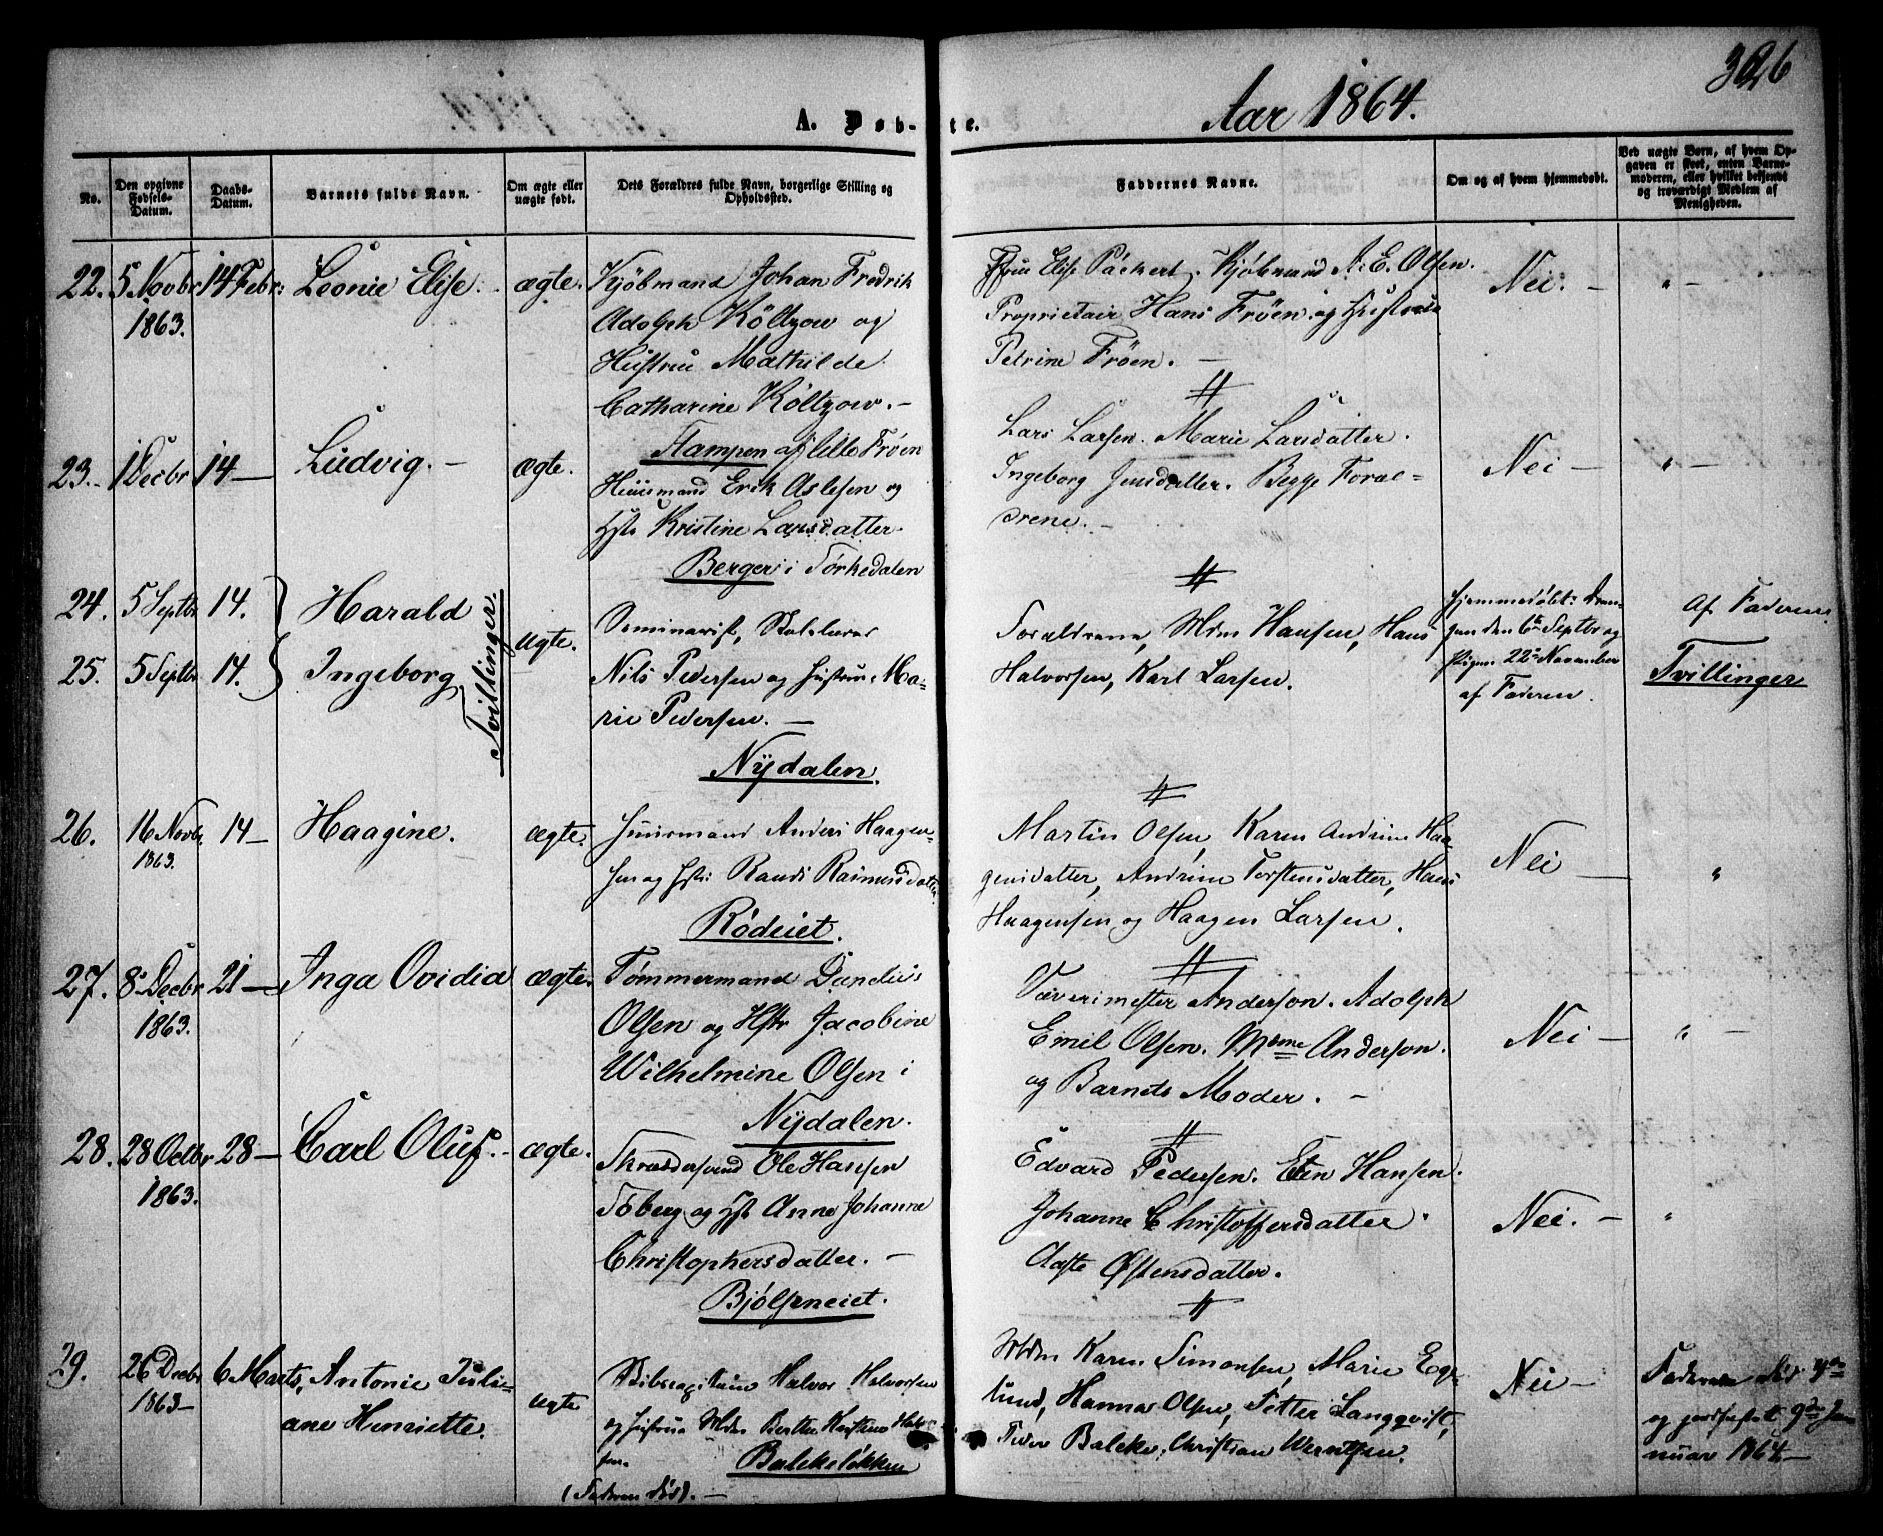 326
Aar 1864.
A. Døb-te.
No.
Den opgivne Fødsels-Datum.
Daabs-Datum.
Barnets fulde Navn.
Om ægte eller uægte født.
Dets Forældres fulde Navn, borgerlige Stilling og Opholdssted.
Faddernes Navne.
Om og af hvem hjemmedøbt.
Ved uægte Børn, af hvem Opgaven er skeet, enten Barnemoderen, eller hvilket bekjendt og troværdigt Medlem af Menigheden.
22. 5 Novbr 14 Febr: Leonie Elise. ægte.
1863.
Kjöbmand Johan Fredrik
Adolph Költzow og
Hustru Mathilde
Catharine Költzow. -
Frue Elise Päckert. Kjöbmand A. E. Olsen.
Proprietair Hans Fröen og Hustrue
Petrine Fröen. -
Nei. -
" -
23. 1 Decbr 14 - Ludvig. - ægte.
Stampen af lille Fröen
Huusmand Erik Aslesen og
Hst: Kristine Larsdatter
Lars Larsen. Marie Larsdatter.
Ingeborg Jensdatter. Begge Foræl-
drene. -
Nei -
" -
Berger i Sørkedalen
24. 5 Septbr 14. Harald
25. 5 Septbr 14. Ingeborg
Tvillinger
ægte.
Seminarist, Skolelærer
Nils Pedersen og Hustrue Ma-
rie Pedersen. -
Forældrene, Mdm Hansen, Hans
Halvorsen, Karl Larsen.
Hjemmedøbt: Dren-
gen den 6te Septbr og
Pigen 22de November
af Faderen.
Af Faderen.
Tvillinger
Nydalen.
26. 16 Novbr. 14 - Haagine. ægte.
1863.
Huusmand Anders Haagen-
sen og Hst: Randi Rasmusdatter
Martin Olsen, Karen Andrine Haa-
gensdatter, Andrine Torstensdatter, Hans
Haagensen og Haagen Larsen.
Nei -
"
Rödeiet.
27. 8 Decbr 21 - Inga Ovidia ægte.
1863.
Tömmermand Danelius
Olsen og Hstr Jacobine
Wilhelmine Olsen i
Nydalen.
Væverimester Anderson. Adolph
Emil Olsen. Mdme Anderson.
og Barnets Moder. -
Nei -
" -
28. 28 Octbr 28 - Carl Oluf. - ægte.
1863.
Skrædersvend Ole Hansen
Toberg og Hst Anne Johanne
Christophersdatter. -
Edvard Pedersen. Even Hansen.
Johanne Christoffersdatter.
Aaste Østensdatter.
Nei. -
"
Bjölseneiet.
29. 26 Decbr 6 Marts, Antonie Juli-
1863 -
ane Henriette.
ægte
Skibscapitain Halvor Halvorsen
og Hustrue Mdm Berthe Kirstine Halvor-
sen. Balkeløkken
(Faderen död). -
Mdm Karen Simonsen, Marie Eg-
lund, Hannas Olsen, Petter Langqvist,
Peder Balcke, Christian Werntsen.
Nei -
Faderen död 4de
og jordfæstet 9de Ja-
nuar 1864 -